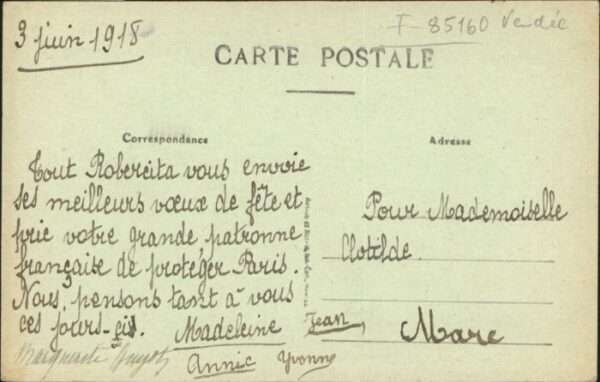 3 juin 1918
F-85160 Vendée
CARTE POSTALE
Correspondance
Adresse
Tout Robercita vous envoie
ses meilleurs vœux de fête et
prie votre grande patronne
française de protéger Paris.
Nous pensons tant à vous
ces jours-ci.
Madeleine
Jean
Marc
Marguerite
Annic
Yvonne
Pour Mademoiselle
Clotilde.